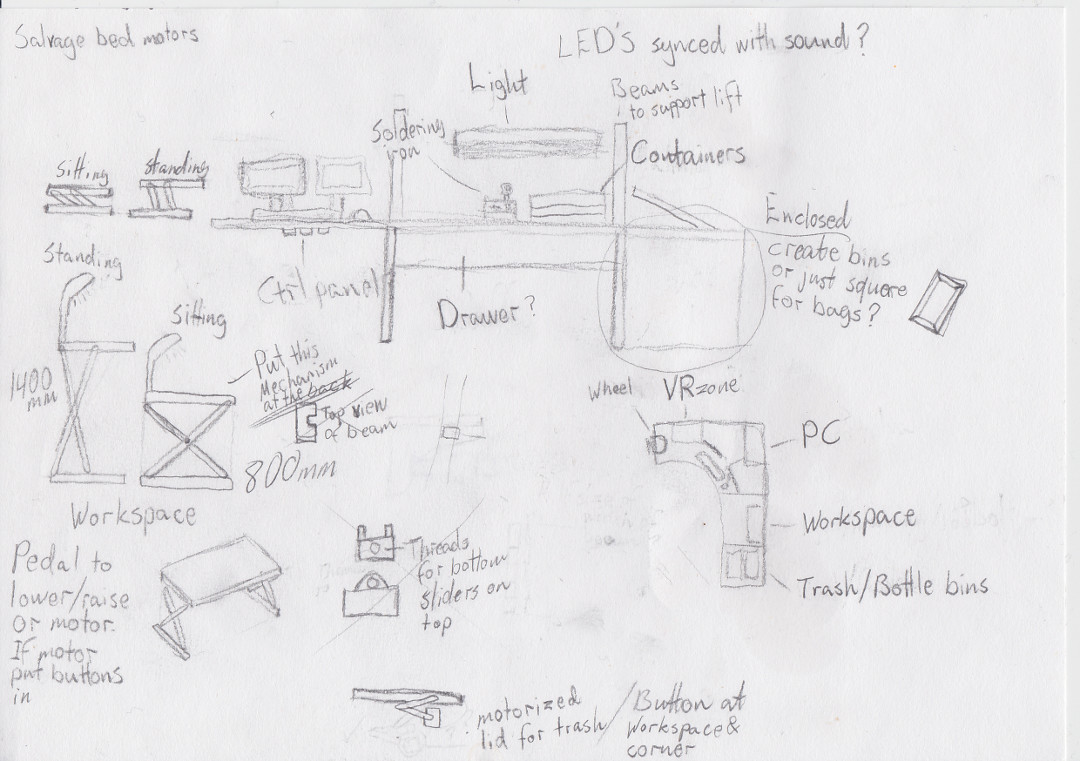 Salvage bed motors
LED's synced with sound?
Light
Beams
to support lift
Soldering
iron
Containers
Sitting
Standing
Enclosed
create bins
or just square
for bags?
Standing
Ctrl panel
Drawer?
Sitting
Put this
Mechanism
at the back
1400
mm
Top view
of beam
800mm
Wheel
VR zone
PC
Workspace
Workspace
Trash/Bottle bins
Threads
for bottom
sliders on
top
Pedal to
lower/raise
Or motor.
If motor
put buttons
in
motorized
lid for trash
/Button at
Workspace &
corner